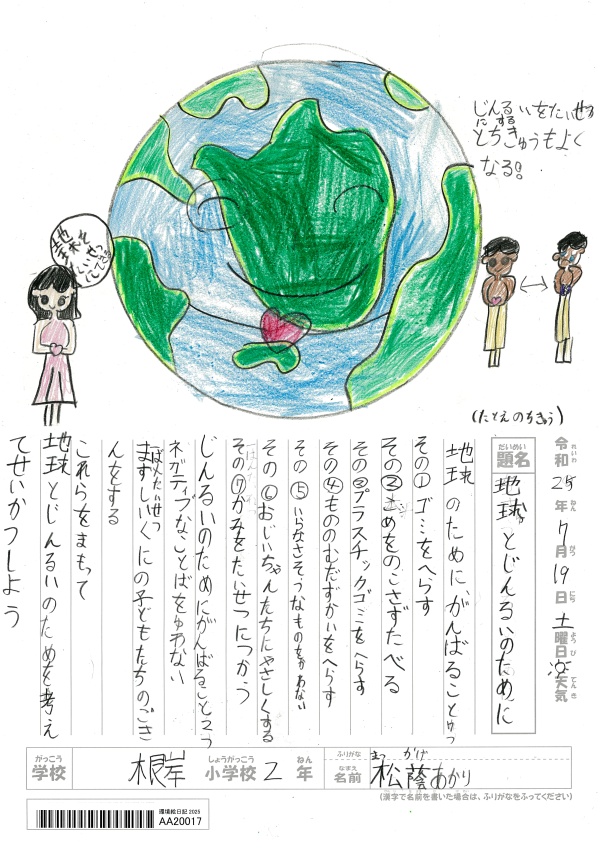 じんるいをたいせつ
にする
とちきゅうもよく
なる!
地球を
たいせつ
にして
(たとえのちきゅう)
令和25年7月19日土曜日 天気
れいわ ねん がつ にち ようび てんき
だいめい
題名
地球とじんるいのために
地球のためにがんばること7つ
その①ゴミをへらす
その②こめをのこさずたべる
その③プラスチックゴミをへらす
その④もののむだずかいをへらす
その⑤いらなさそうなものをかわない
その⑥おじいちゃんたちにやさしくする
その⑦かみをたいせつにつかう
じんるいのためにがんばること2つ
ネガティブなことばをゆわない
まずしいくにの子どもたちのごき
んをする
これらをまもって
地球とじんるいのためを考え
てせいかつしよう
がっこう しょうがっこう ねん
学校 根岸 小学校 2 年
ふりがな まつ かげ
なまえ
名前 松蔭あかり
(漢字で名前を書いた場合は、ふりがなをふってください)
環境絵日記 2025
AA20017